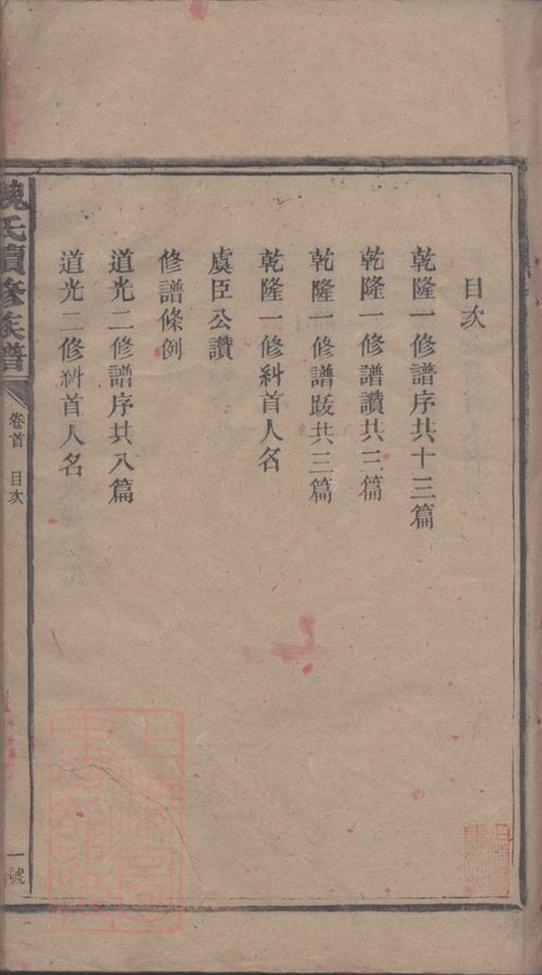 目次
乾隆一修譜序共十三篇
乾隆一修譜讚共三篇
乾隆一修譜跋共三篇
乾隆一修糾首人名
虞臣公讚
修譜條例
道光二修譜序共八篇
道光二修糾首人名
氏續修族譜
卷首 目次
一號